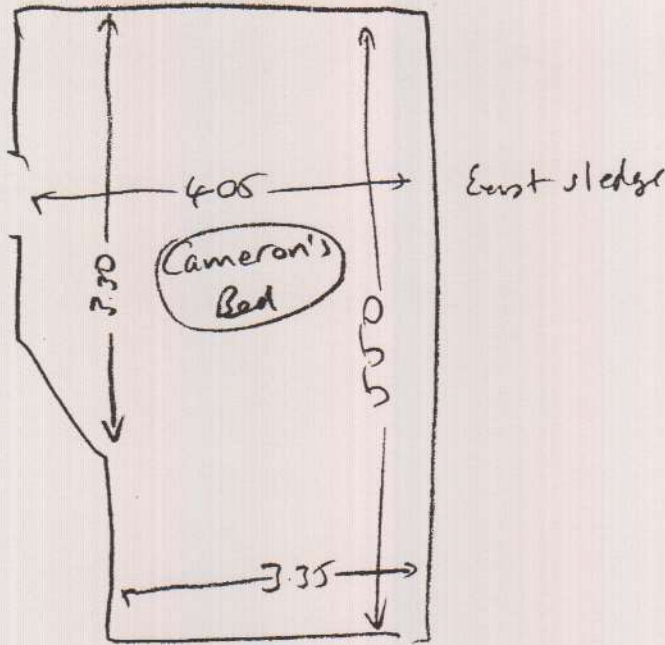 405
East sledge
Cameron's
Bed
3.30
550
3.35